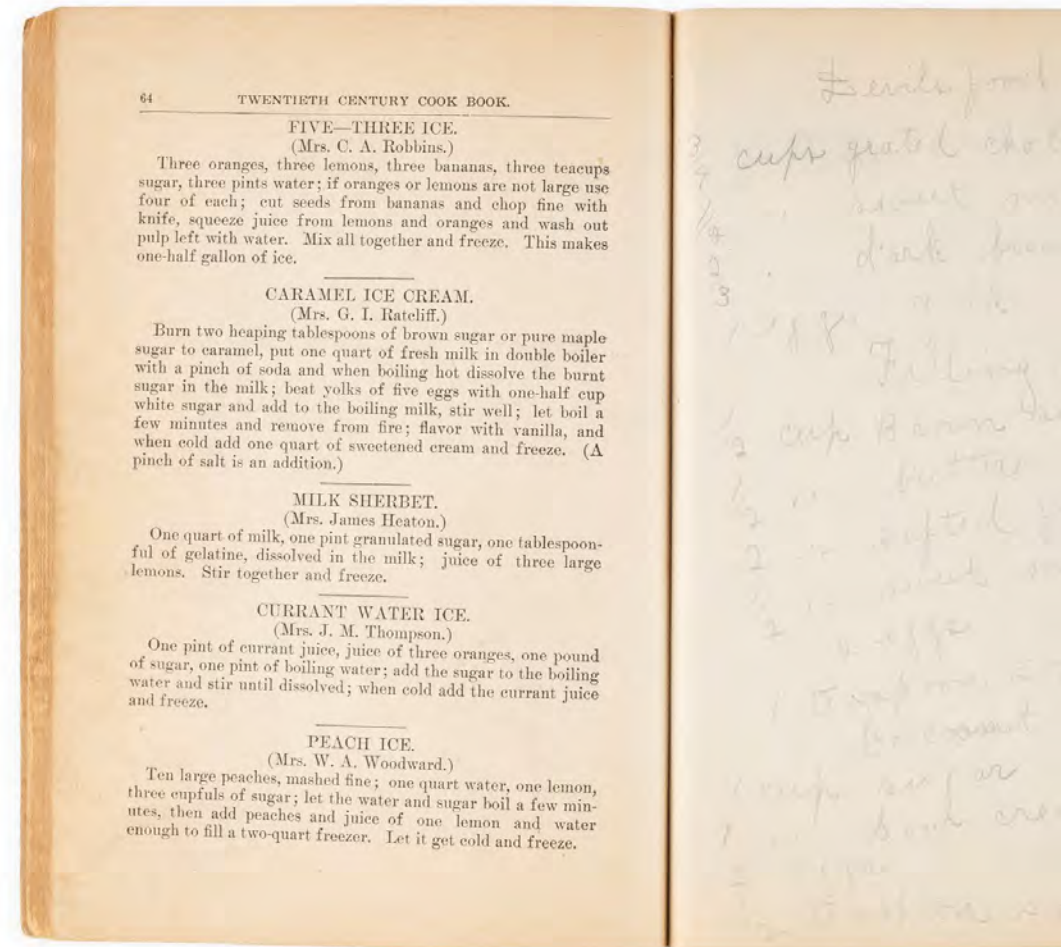 64 TWENTIETH CENTURY COOK BOOK.
FIVE—THREE ICE.
(Mrs. C. A. Robbins.)
Three oranges, three lemons, three bananas, three teacups
sugar, three pints water; if oranges or lemons are not large use
four of each; cut seeds from bananas and chop fine with
knife, squeeze juice from lemons and oranges and wash out
pulp left with water. Mix all together and freeze. This makes
one-half gallon of ice.
CARAMEL ICE CREAM.
(Mrs. G. I. Ratcliff.)
Burn two heaping tablespoons of brown sugar or pure maple
sugar to caramel, put one quart of fresh milk in double boiler
with a pinch of soda and when boiling hot dissolve the burnt
sugar in the milk; beat yolks of five eggs with one-half cup
white sugar and add to the boiling milk, stir well; let boil a
few minutes and remove from fire; flavor with vanilla, and
when cold add one quart of sweetened cream and freeze. (A
pinch of salt is an addition.)
MILK SHERBET.
(Mrs. James Heaton.)
One quart of milk, one pint granulated sugar, one tablespoon-
ful of gelatine, dissolved in the milk; juice of three large
lemons. Stir together and freeze.
CURRANT WATER ICE.
(Mrs. J. M. Thompson.)
One pint of currant juice, juice of three oranges, one pound
of sugar, one pint of boiling water; add the sugar to the boiling
water and stir until dissolved; when cold add the currant juice
and freeze.
PEACH ICE.
(Mrs. W. A. Woodward.)
Ten large peaches, mashed fine; one quart water, one lemon,
three cupfuls of sugar; let the water and sugar boil a few min-
utes, then add peaches and juice of one lemon and water
enough to fill a two-quart freezer. Let it get cold and freeze.
Devils food
cups grated choc
sweet
dark brow
3
Filling
cup Brown
butter
2 sifted
sweet
eggs
1
cup sugar
1 sour cre
2